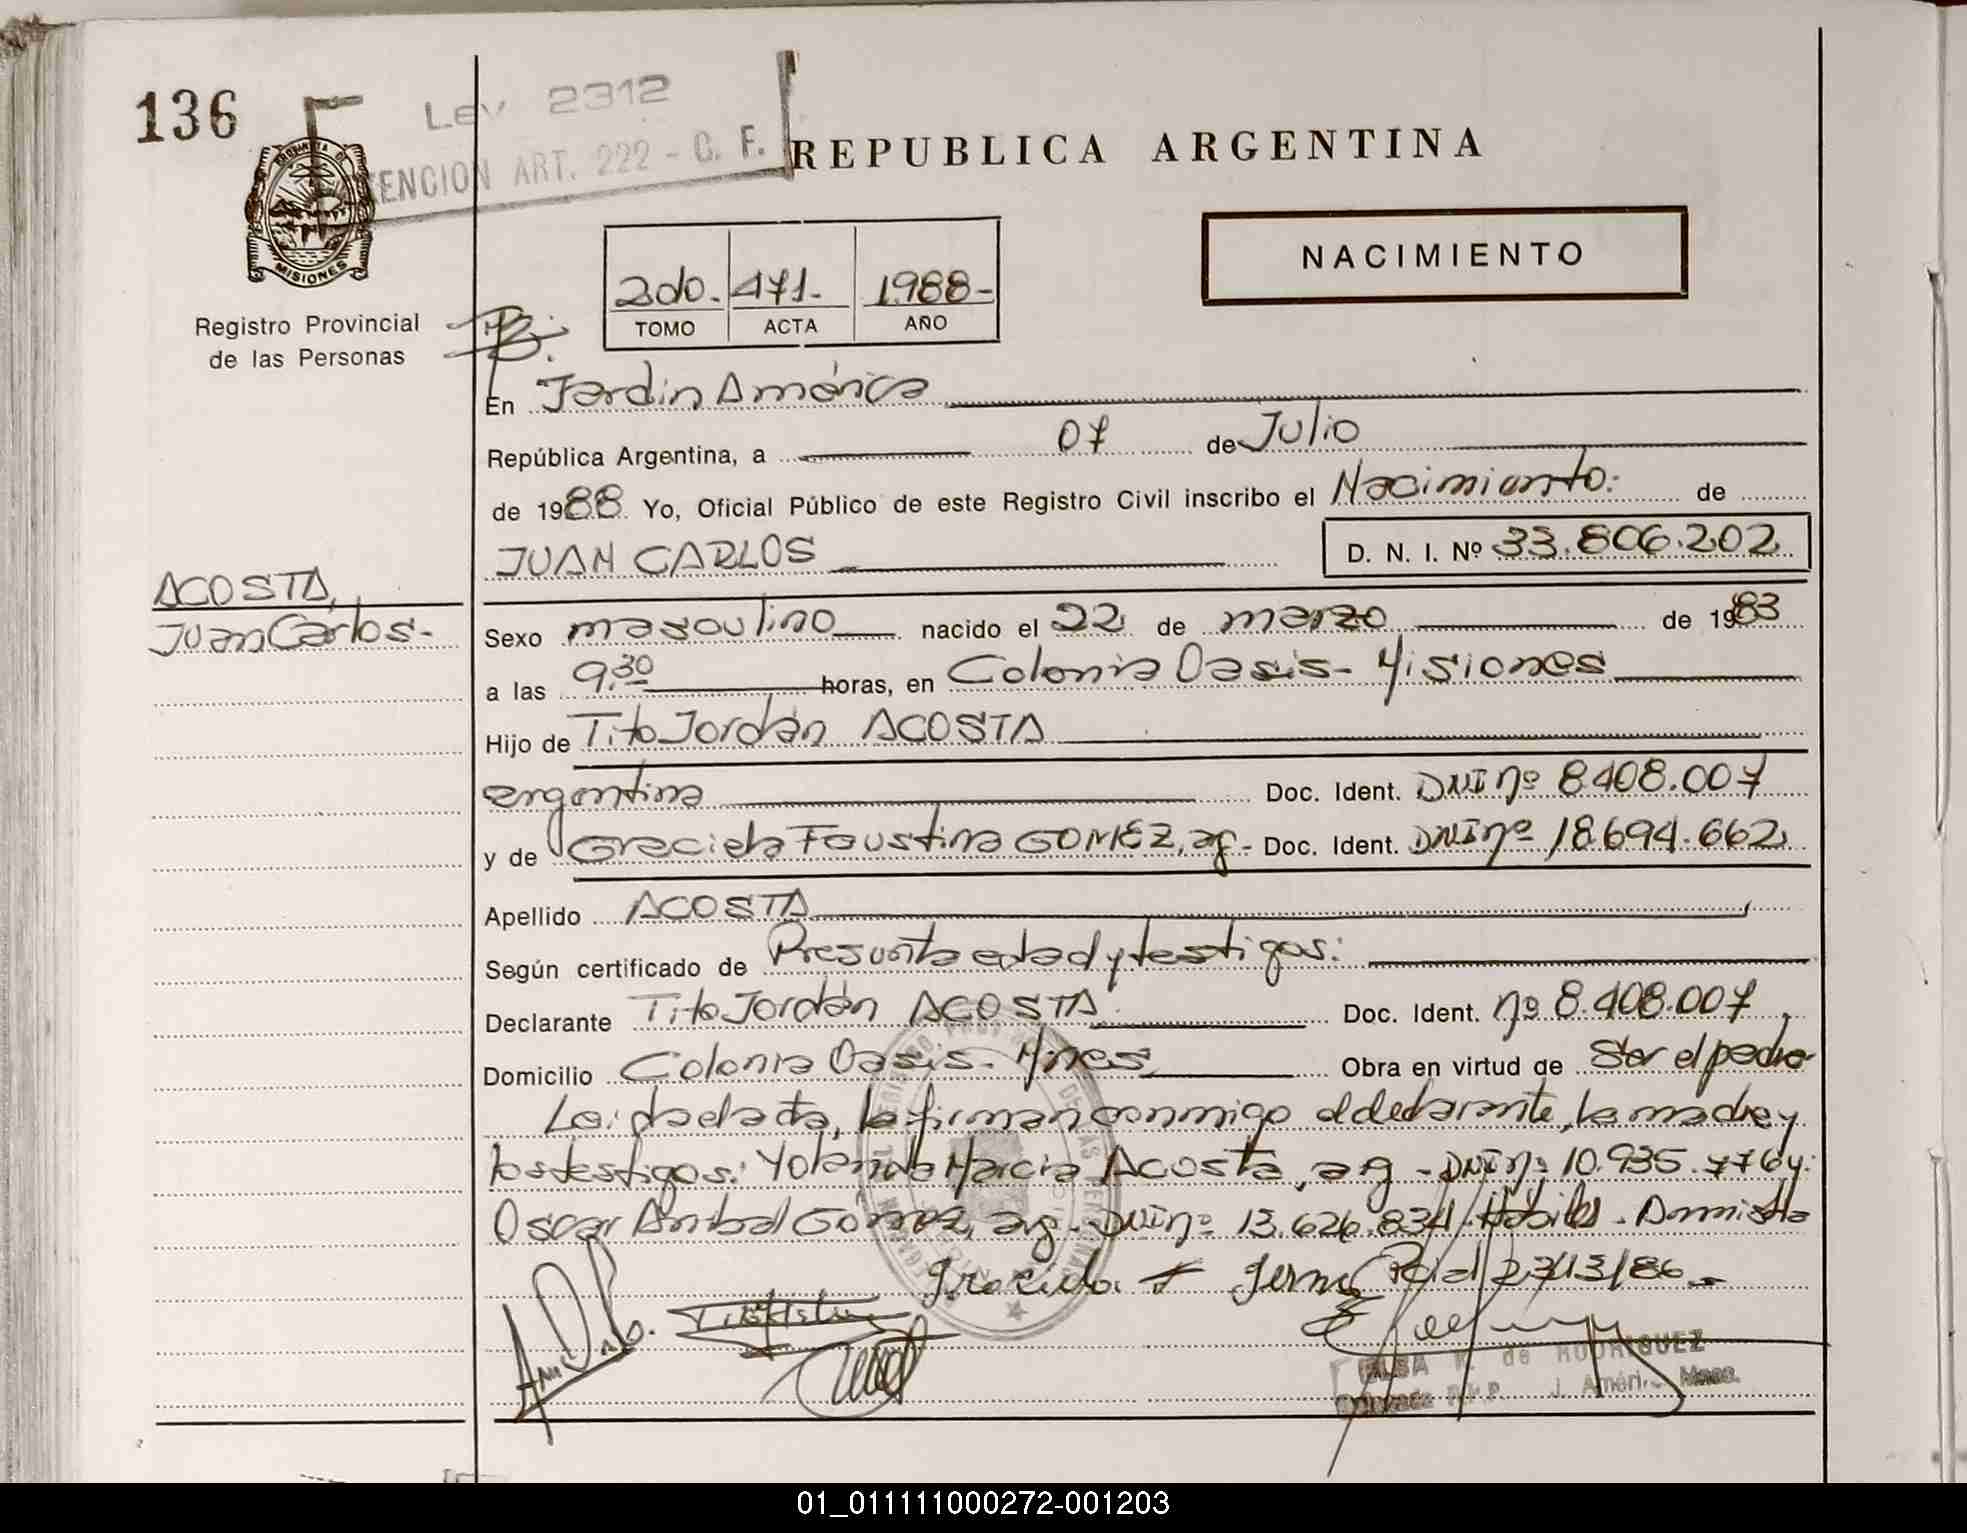 136
Ley 2312
ENCION ART. 222 - C. F.
REPUBLICA ARGENTINA
PROVINCIA DE
MISIONES
Registro Provincial
de las Personas
2do. 471. 1988-
TOMO ACTA AÑO
NACIMIENTO
En Jardín América
República Argentina, a 07 de Julio
de 1988 Yo, Oficial Público de este Registro Civil inscribo el Nacimiento. de
JUAN CARLOS D. N. I. Nº 33.806.202
ACOSTA,
Juan Carlos-
Sexo masculino nacido el 22 de marzo de 1983
a las 9,30 horas, en Colonia Oasis- Misiones
Hijo de Tito Jordán ACOSTA
argentina Doc. Ident. DNI nº 8.408.007
y de Graciela Faustina GOMEZ, ag- Doc. Ident. DNI nº 18.694.662
Apellido ACOSTA
Según certificado de Presunta edad y testigos:
Declarante Tito Jordán ACOSTA Doc. Ident. nº 8.408.007
Domicilio Colonia Oasis- Mnes Obra en virtud de Ser el padre
Leída el acta, la firman conmigo el declarante, la madre y
los testigos: Yolanda Marcia Acosta, ag - DNI nº 10.935.776 y:
Oscar Anibal Gómez, ag. DNI nº 13.626.834 Hábiles.
23/13/86
ELSA de RODRIGUEZ
01_011111000272-001203